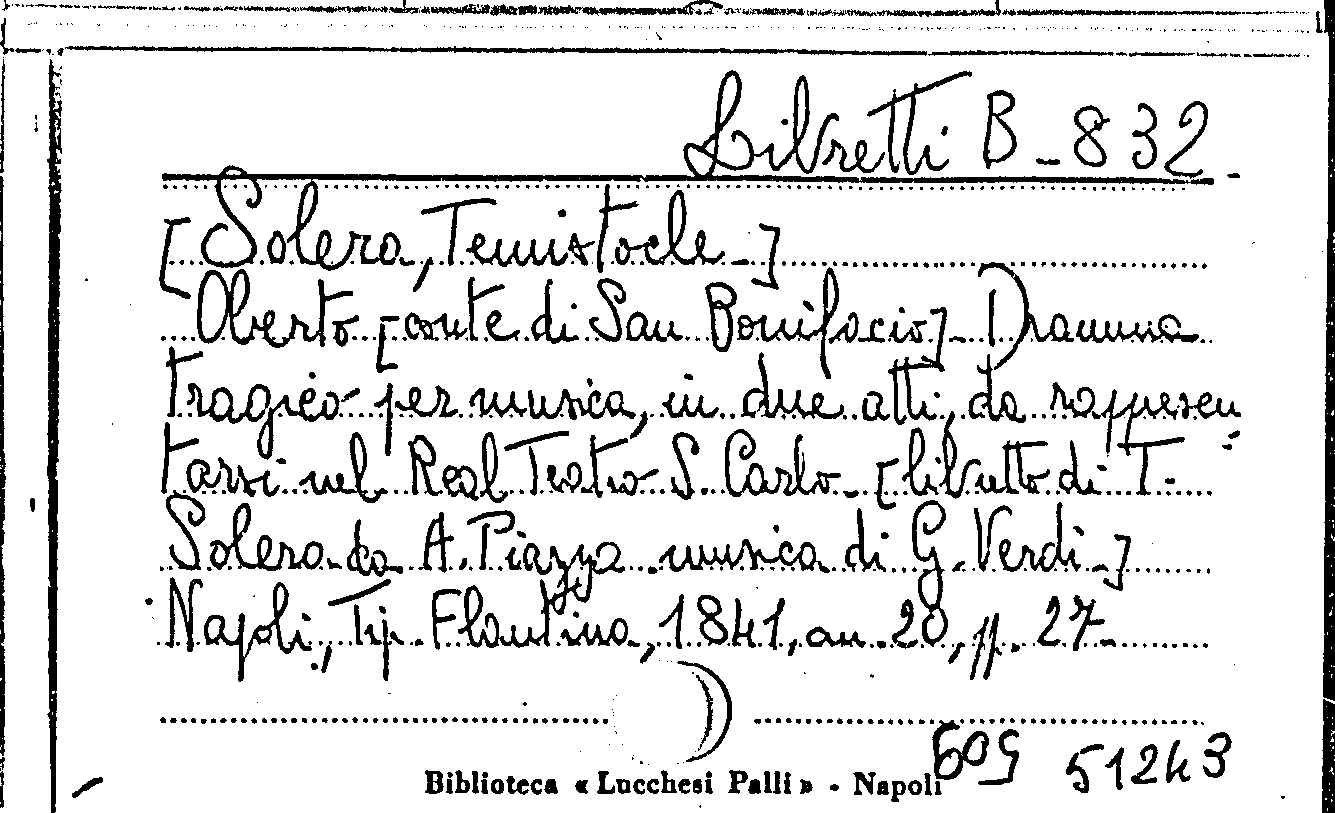 Libretti B-832
[Solera, Temistocle-]
Oberto [conte di San Bonifacio]- Dramma
tragico per musica, in due atti, da rappresen
tarsi nel Real Teatro S. Carlo- [libretto di T.
Solera da A. Piazza musica di G. Verdi-]
Napoli, Tip. Flautina, 1841, cm. 20, pp. 27-
Biblioteca « Lucchesi Palli » - Napoli
609 51243